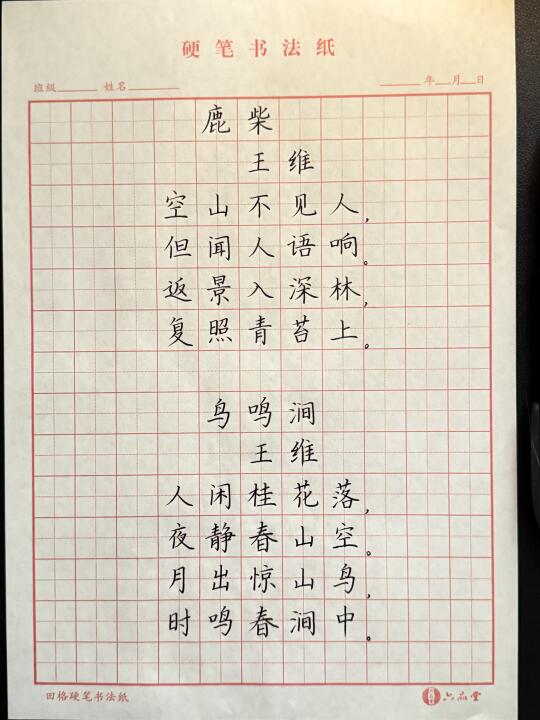 硬笔书法纸
班级 姓名 年 月 日
鹿柴
王维
空山不见人,
但闻人语响。
返景入深林,
复照青苔上。
鸟鸣涧
王维
人闲桂花落,
夜静春山空。
月出惊山鸟,
时鸣春涧中。
田格硬笔书法纸
六品堂